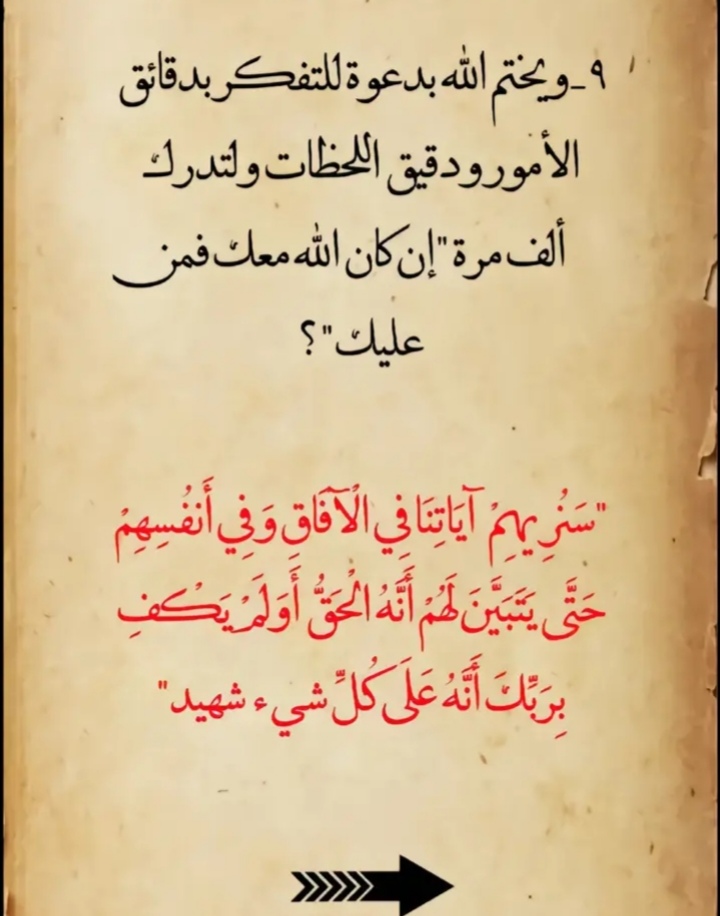 ٩_ويختم الله بدعوة للتفكر بدقائق
الأمور ودقيق اللحظات ولتدرك
ألف مرة "إن كان الله معك فمن
عليك"؟
"سَنُرِيهِمْ آيَاتِنَا فِي الْآفَاقِ وَفِي أَنفُسِهِمْ
حَتَّى يَتَبَيَّنَ لَهُمْ أَنَّهُ الْحَقُّ أَوَلَمْ يَكْفِ
بِرَبِّكَ أَنَّهُ عَلَى كُلِّ شيء شهيد"